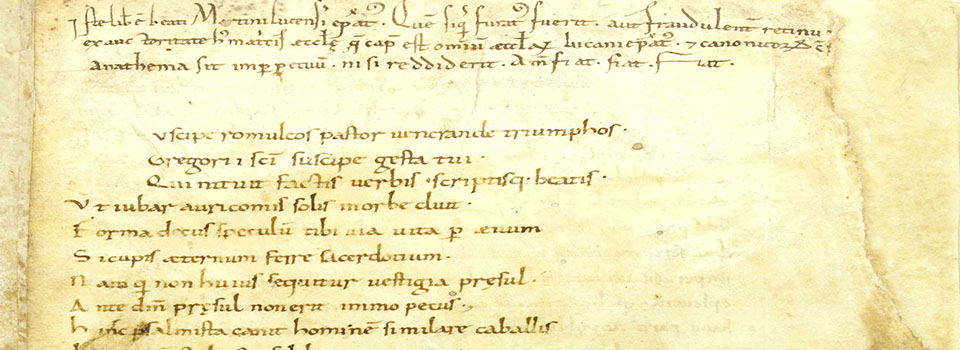 Iste lib̄ ē beati Martini lucensis ep̄at᷒. Quē siq̇ furat᷒ fuerit. aut fraudulent̄ retinu
ex auctoritate matris æccl̄ę q̄ cap̄ est omniū lucani ep̄at᷒. ⁊ canonicor̄
anathema sit inp̄petuū. nisi reddiderit. Am̄ fiat. fiat. Fiat.
uscipe romulcos pastor uenerande triumphos.
Gregorii sc̄i suscipe gesta tui.
Qui nituit factis uerbis. scriptisq; beatis.
Vt iubar auricomis solis in orbe cluit.
Forma decus speculū tibi uia uita p̄ æuum
Si cupis æternum ferre sacerdotium.
Nam qi non huius sequitur uestigia pręsul.
Ante dn̄m pręsul non erit immo pecus.
hinc psalmista canit hominē similare caballis